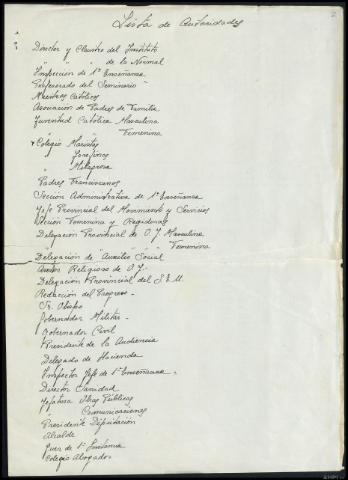 Lista de Autoridades
Director y Claustro del Instituto
" " " de la Normal
Inspección de 1ª Enseñanza
Profesorado del Seminario
Maestros Católicos
Asociación de Padres de Familia
Juventud Católica Masculina
" " Femenina
Colegio Maristas
" Josefinos
" Milagrosa
Padres Franciscanos
Sección Administrativa de 1ª Enseñanza
Jefe Provincial del Movimiento y Servicios
Sección Femenina y Regidoras
Delegación Provincial de O.J. Masculina
" " " " Femenina
Delegación de Auxilio Social
Asesor Religioso de O.J.
Delegación Provincial del S.E.U.
Redacción del Progreso
Sr. Obispo
Gobernador Militar
Gobernador Civil
Presidente de la Audiencia
Delegado de Hacienda
Inspector Jefe de 1ª Enseñanza
Director Sanidad
Jefatura Obras Públicas
" Comunicaciones
Presidente Diputación
Alcalde
Juez de 1ª Instancia
Colegio Abogados